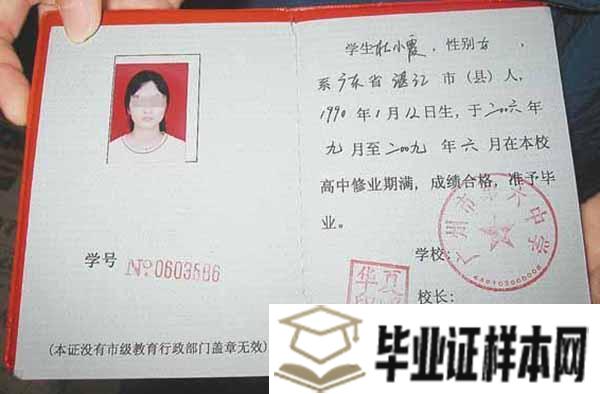 学生杜小霞，性别女，
系广东省湛江市（县）人，
1990年1月12日生，于二00六年
九月至二00九年六月在本校
高中修业期满，成绩合格，准予毕
业。
学校：
校长：
学号 №0603586
(本证没有市级教育行政部门盖章无效)
广州市第六中学
4401030008008
毕业证样本网